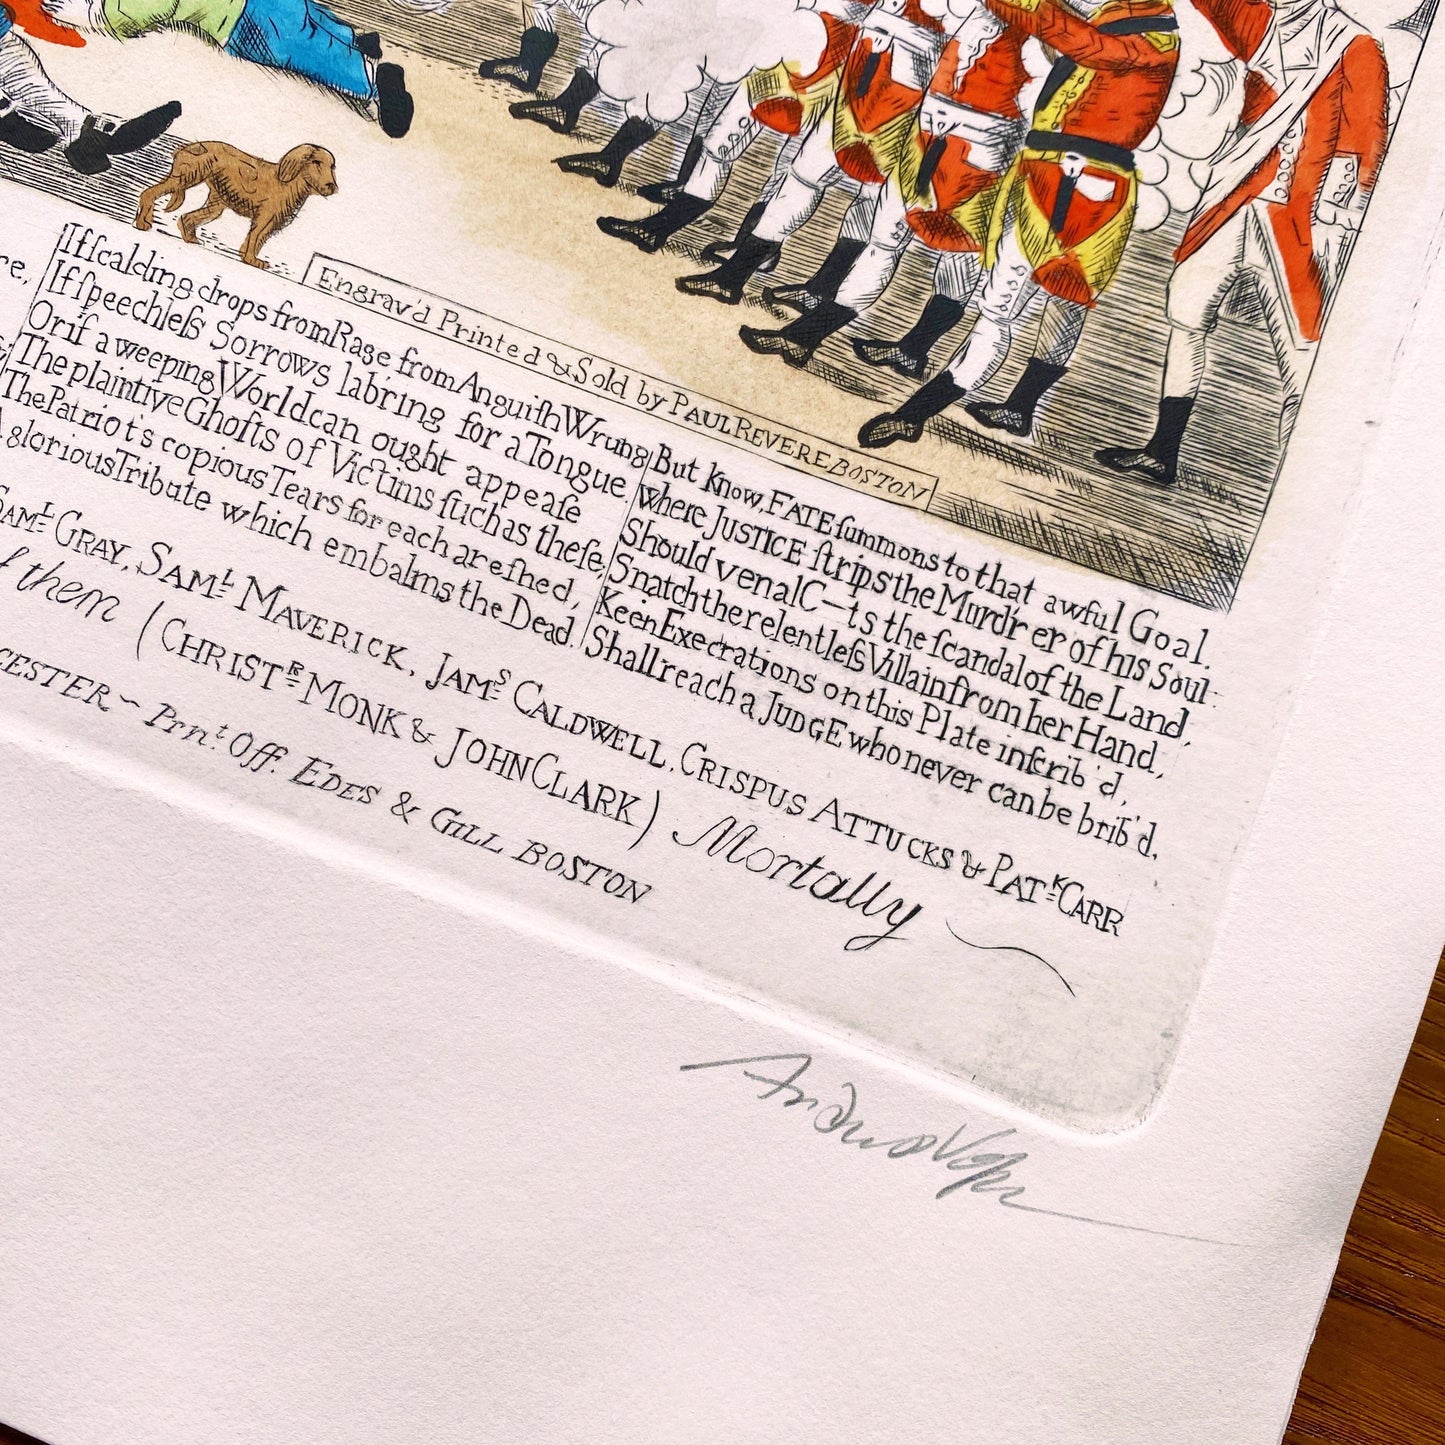 Engrav'd Printed & Sold by PAUL REVERE BOSTON
re,
If ſcalding drops from Rage from Anguiſh Wrung
If ſpeechleſs Sorrows lab'ring for a Tongue.
Or if a weeping World can ought appeaſe
The plaintive Ghoſts of Victims ſuch as theſe;
The Patriot's copious Tears for each are ſhed,
A glorious Tribute which embalms the Dead.
But know, FATE ſummons to that awful Goal.
Where JUSTICE ſtrips the Murd'rer of his Soul:
Should venal C—ts the ſcandal of the Land,
Snatch the relentleſs Villain from her Hand,
Keen Execrations on this Plate inſcrib'd,
Shall reach a JUDGE who never can be brib'd.
SAMᴸ GRAY, SAMᴸ MAVERICK, JAMˢ CALDWELL, CRISPUS ATTUCKS & PATᴷ CARR
them (CHRISTᴿ MONK & JOHN CLARK) Mortally
CESTER ~ Prnᵗ Off. EDES & GILL BOSTON